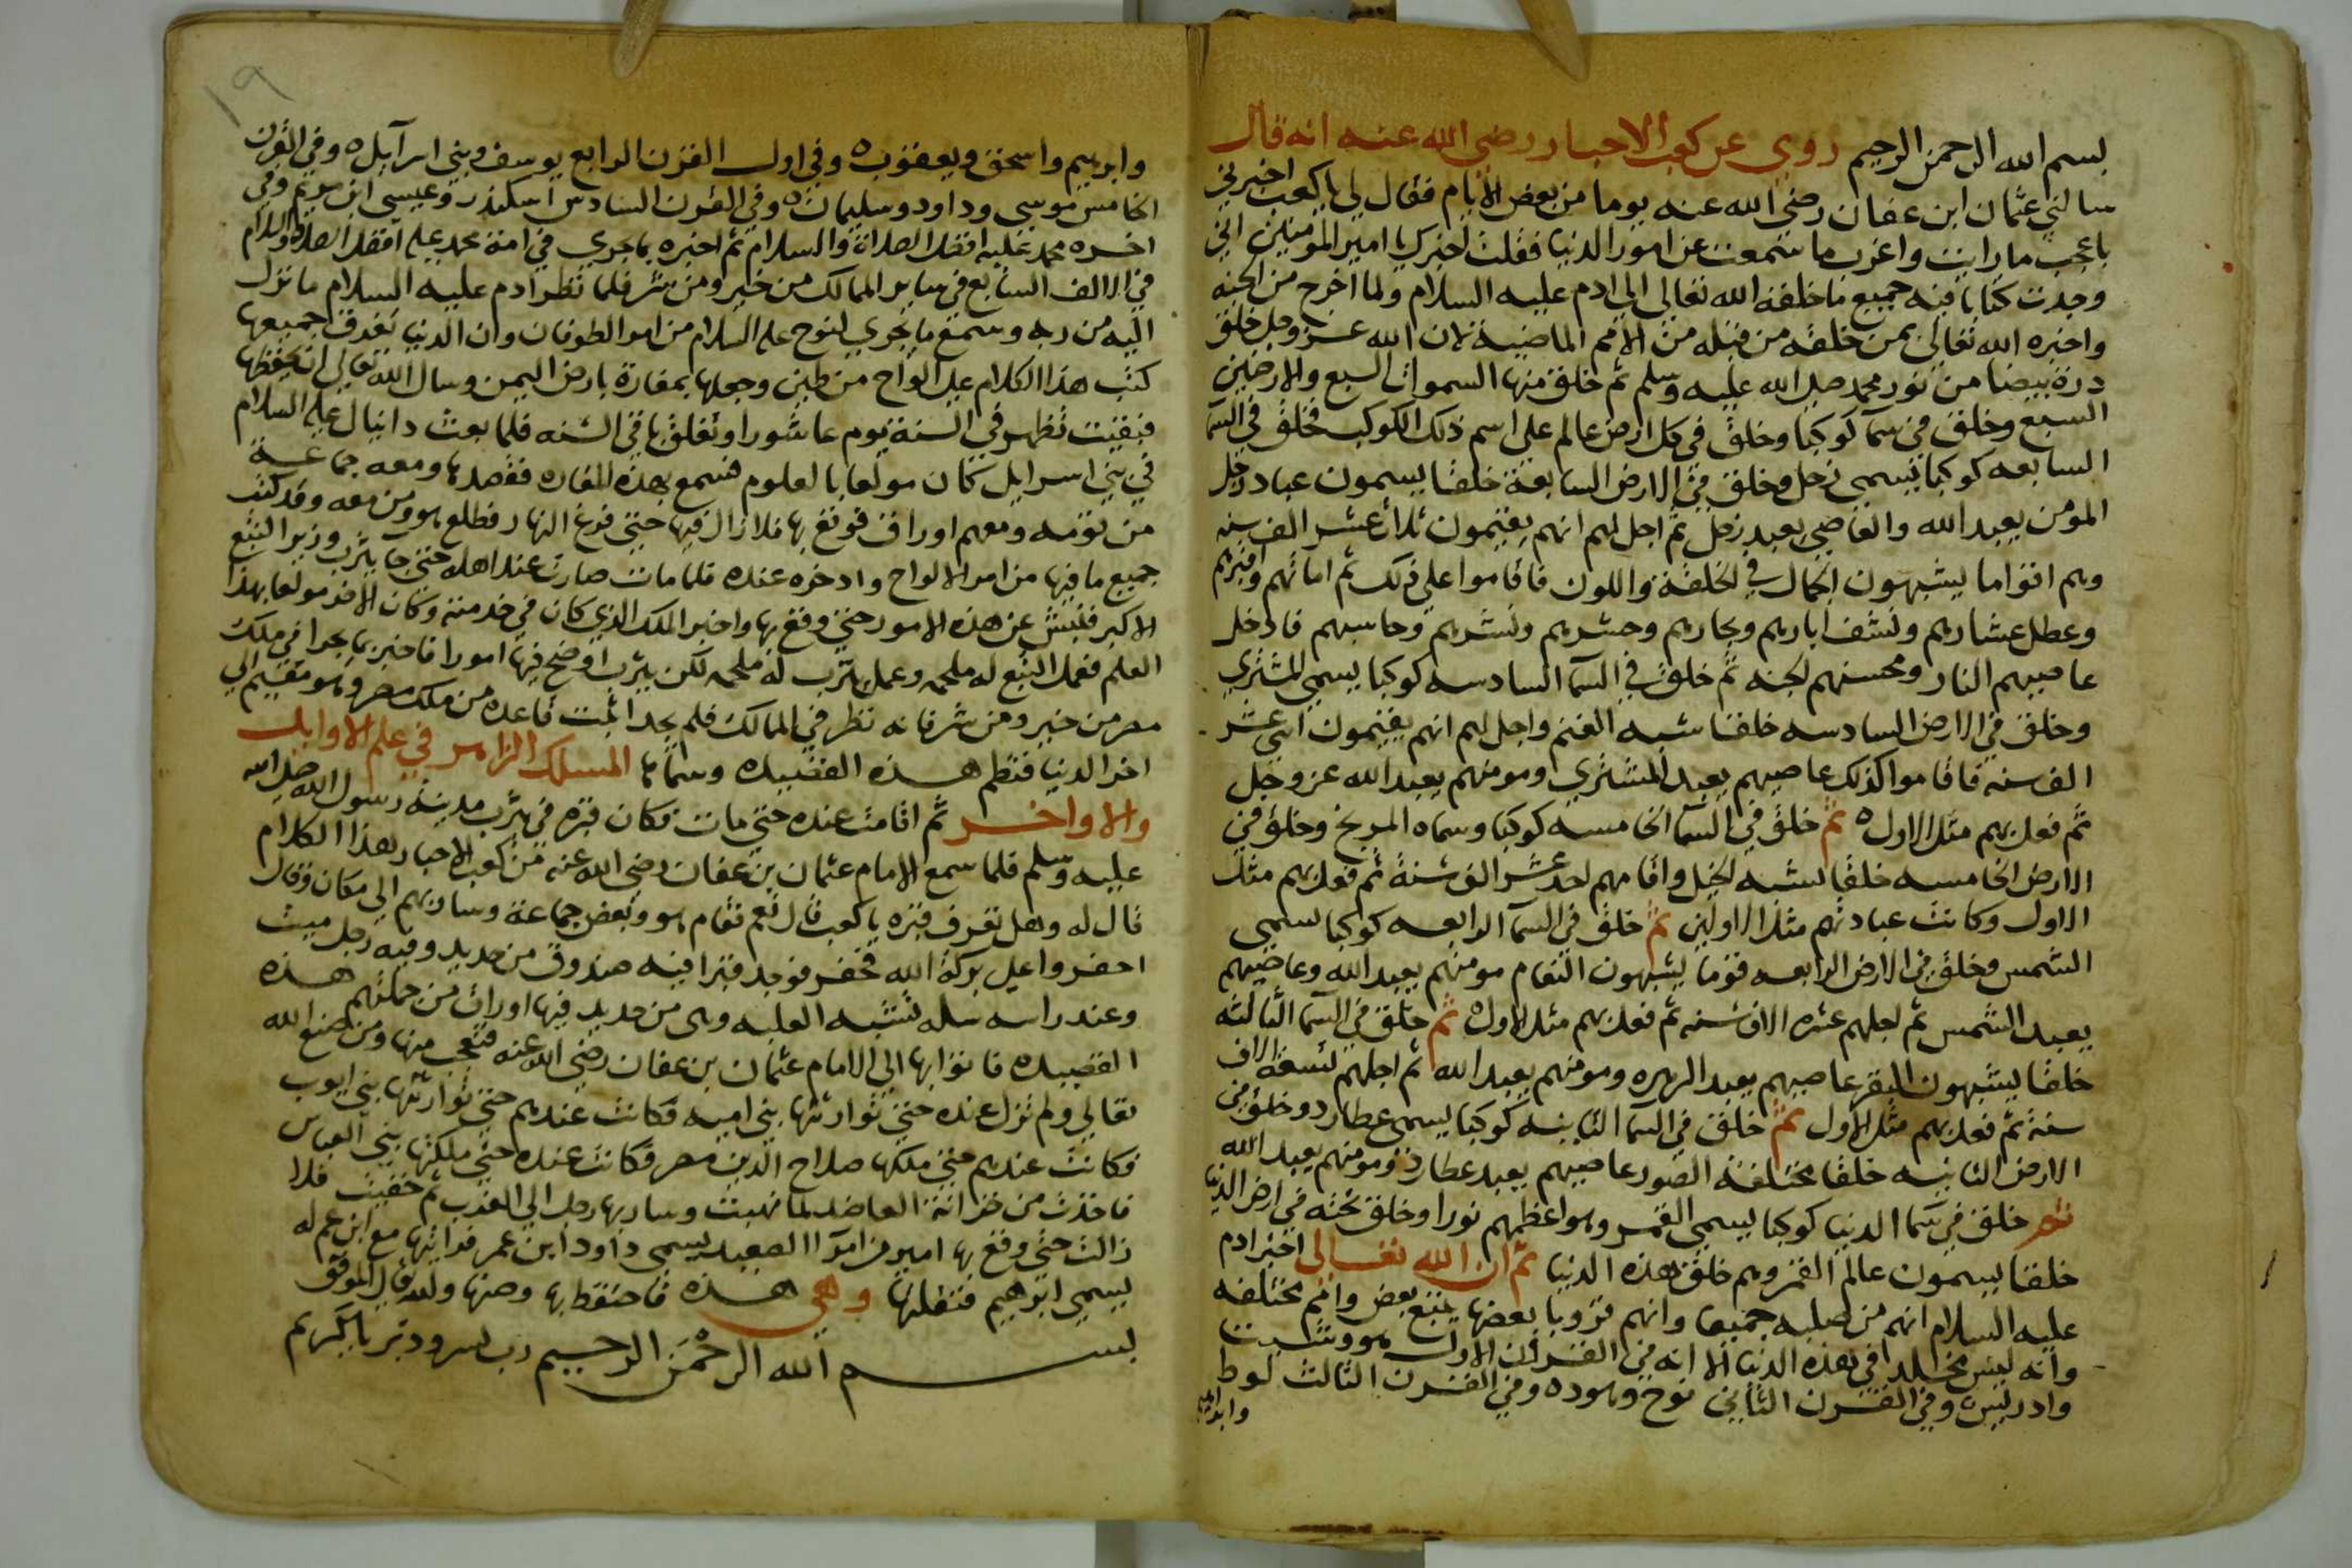 بسم الله الرحمن الرحيم روي عن كعب الاحبار رضي الله عنه انه قال
سالني عثمان ابن عفان رضي الله عنه يوما من بعض الايام فقال لي يا كعب اخبرني
باعجب ما رايت واغرب ما سمعت عن امور الدنيا فقلت اخبرك يا امير المؤمنين اني
وجدت كتابا فيه جميع ما خلقه الله تعالى الي ادم عليه السلام ولما اخرج من الجنة
واخبره الله تعالى بمن خلقه من قبله من الامم الماضية لان الله عز وجل خلق
درة بيضا من نور محمد صلى الله عليه وسلم ثم خلق منها السموات السبع والارضين
السبع وخلق في سما كوكبا وخلق في كل ارض عالم على اسم ذلك الكوكب فخلق في السما
السابعه كوكبا يسمى زحل وخلق في الارض السابعة خلقا يسمون عباد زحل
المومن يعبد الله والعاصي يعبد زحل ثم اجل لهم انهم يقيمون ثلاث عشر الف سنه
وهم اقواما يشبهون الجمال في الخلقة واللون فاقاموا على ذلك ثم اماتهم واقبرهم
وعطل عشارهم ونشف ابارهم وبحارهم وحشرهم ونشرهم وحاسبهم فادخل
عاصيهم النار ومحسنهم الجنه ثم خلق في السما السادسه كوكبا يسمى المشتري
وخلق في الارض السادسه خلقا شبه الغنم واجل لهم انهم يقيمون اثني عشر
الف سنه فاقاموا كذلك عاصيهم يعبد المشتري ومومنهم يعبد الله عز وجل
ثم فعل بهم مثل الاول ثم خلق في السما الخامسه كوكبا وسماه المريخ وخلق في
الارض الخامسه خلقا تشبه الخيل واقامهم احد عشر الف سنة ثم فعل بهم مثل
الاول وكانت عبادتهم مثل الاولين ثم خلق في السما الرابعه كوكبا يسمى
الشمس وخلق في الارض الرابعه قوما يشبهون النعام مومنهم يعبد الله وعاصيهم
يعبد الشمس ثم اجلهم عشره الاف سنه ثم فعل بهم مثل الاول ثم خلق في السما الثالثه
خلقا يشبهون البقر عاصيهم يعبد الزهره ومومنهم يعبد الله ثم اجلهم تسعة الاف
سنه ثم فعل بهم مثل الاول ثم خلق في السما الثانيه كوكبا يسمى عطارد وخلق في
الارض الثانيه خلقا مختلفة الصور عاصيهم يعبد عطارد ومومنهم يعبد الله
ثم خلق في سما الدنيا كوكبا يسمى القمر وهو اعظمهم نورا وخلق تحته في ارض الدنيا
خلقا يسمون عالم القمر وهم خلق هذه الدنيا ثم ان الله تعالى اخبر ادم
عليه السلام انهم من صلبه جميعا وانهم قرونا بعضها يتبع بعض وانهم مختلفه
وانه ليس مخلدا في هذه الدنيا الا انه في القرن الاول هو وشيت
وادريس وفي القرن الثاني نوح وهود وفي القرن الثالث لوط
وابراهيم
١٩
وابرهيم واسحق ويعقوب وفي اول القرن الرابع يوسف وبني اسرآيل وفي القرن
الخامس موسى وداود وسليمان وفي القرن السادس اسكندر وعيسى ابن مريم وفي
اخره محمد عليه افضل الصلاة والسلام ثم اخبره بما جري في امة محمد عليه افضل الصلاة والسلام
في الالف السابع في ساير الممالك من خير ومن شر فلما نظر ادم عليه السلام ما نزل
اليه من ربه وسمع ما يجري لنوح عليه السلام من امر الطوفان وان الدنيا تغرق جميعها
كتب هذا الكلام على الواح من طين وجعلها بمغارة بارض اليمن وسال الله تعالى ان يحفظها
فبقيت تظهر في السنة يوم عاشورا وتغلق باقي السنه فلما بعث دانيال عليه السلام
في بني اسرايل كان مولعا بالعلوم فسمع بهذه المغاره فقصدها ومعه جماعة
من قومه ومعهم اوراق فوقع بها فلا زال فيها حتي فرغ النهار فطلع هو ومن معه وقد كتب
جميع ما فيها من امر الالواح وادخره عنده فلما مات صارت عند اهله حتي جا يثرب وزير التبع
الاكبر ففتش عن هذه الامور حتي وقع بها واخبر الملك الذي كان في خدمته وكان الاخر مولعا بهذا
العلم فعمل التبع له ملحمه وعمل يثرب له ملحمه لكن يثرب اوضح فيها امورا فاخبر بما يجرا في ملك
مصر من خير ومن شر فانه نظر في الممالك فلم يجد اثبت قاعده من ملك مصر وهو مقيم الي
اخر الدنيا فنظم هذه القصيده وسماها المسلك الزاهر في علم الاوايل
والاواخر ثم اقامت عنده حتي مات فكان قبره في يثرب مدينة رسول الله صلى الله
عليه وسلم فلما سمع الامام عثمان بن عفان رضي الله عنه من كعب الاحبار هذا الكلام
قال له وهل تعرف قبره يا كعب قال نعم فقام هو وبعض جماعة وسار بهم الي مكان وقال
احفروا على بركة الله فحفر فوجد قبرا فيه صندوق من حديد وفيه رجل ميت
وعند راسه سله تشبه العلبه وهي من حديد فيها اوراق من جملتهم هذه
القصيده فاتوا بها الي الامام عثمان بن عفان رضي الله عنه فتعجب منها ومن صنع الله
تعالي ولم تزل عنده حتي توارثتها بني اميه فكانت عندهم حتي توارثتها بني ايوب
فكانت عندهم حتي ملكها صلاح الدين مصر فكانت عنده حتي ملكتها بني العباس
فاخذت من خزانة العاضد لما نهبت وسار بها رجل الي الغرب ثم خفيت فلا
زالت حتي وقع بها امير من امرا الصعيد يسمى داود ابن عمر فراتها مع ابن عم له
يسمى ابرهيم فنقلتها وهي هذه فاحتفظ بها وصنها والله تعالى الموفق
بسم الله الرحمن الرحيم رب يسر ودبر يا كريم